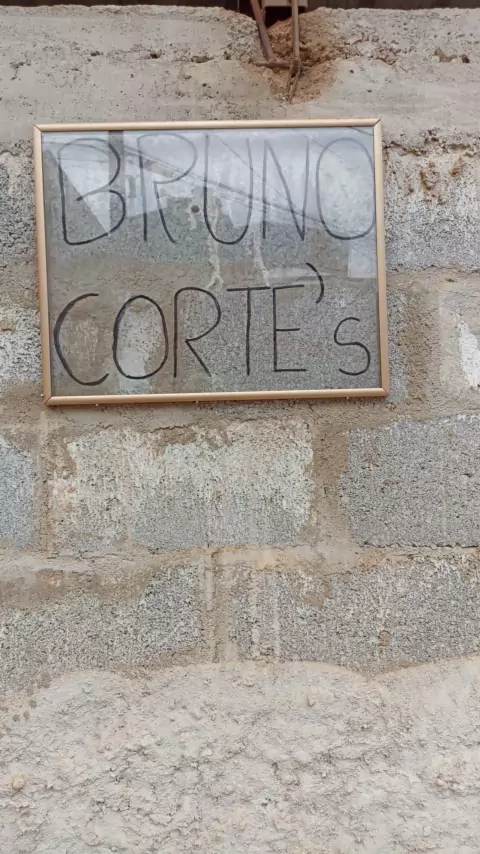 BRUNO
CORTE's